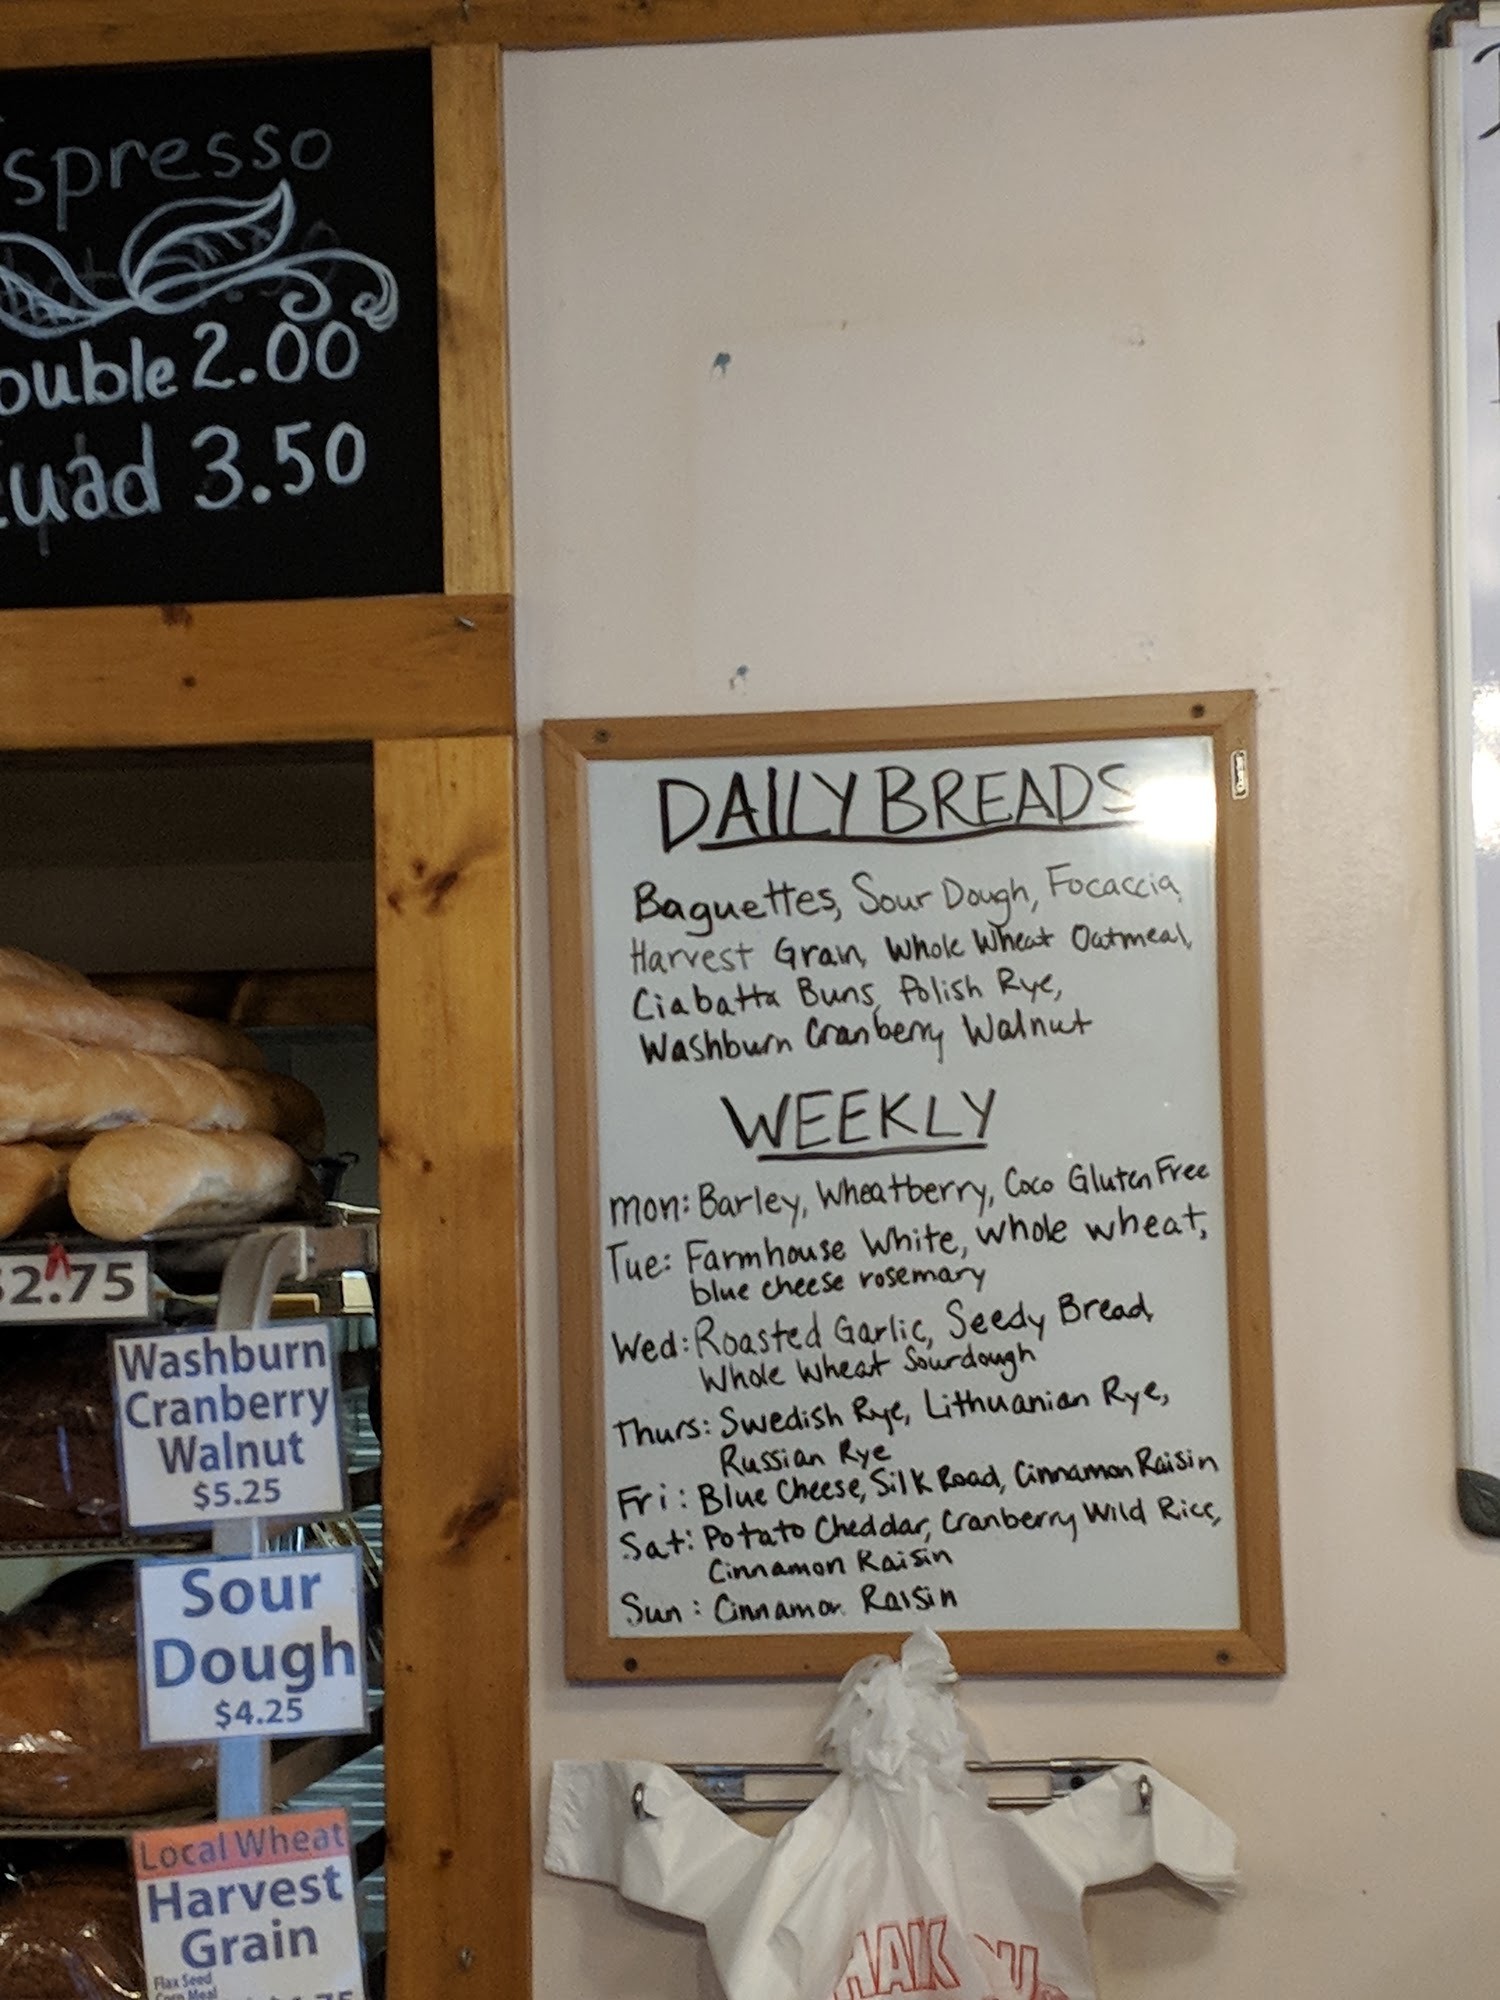 spresso
ouble 2.00
uad 3.50
DAILY BREADS
Baguettes, Sour Dough, Focaccia,
Harvest Grain, Whole Wheat Oatmeal,
Ciabatta Buns, Polish Rye,
Washburn Cranberry Walnut
WEEKLY
Mon: Barley, Wheatberry, Coco Gluten Free
Tue: Farmhouse White, whole wheat,
blue cheese rosemary
Wed: Roasted Garlic, Seedy Bread,
Whole Wheat Sourdough
Thurs: Swedish Rye, Lithuanian Rye,
Russian Rye
Fri: Blue Cheese, Silk Road, Cinnamon Raisin
Sat: Potato Cheddar, Cranberry Wild Rice,
Cinnamon Raisin
Sun: Cinnamon Raisin
$2.75
Washburn
Cranberry
Walnut
$5.25
Sour
Dough
$4.25
Local Wheat
Harvest
Grain
Flax Seed
Corn Meal